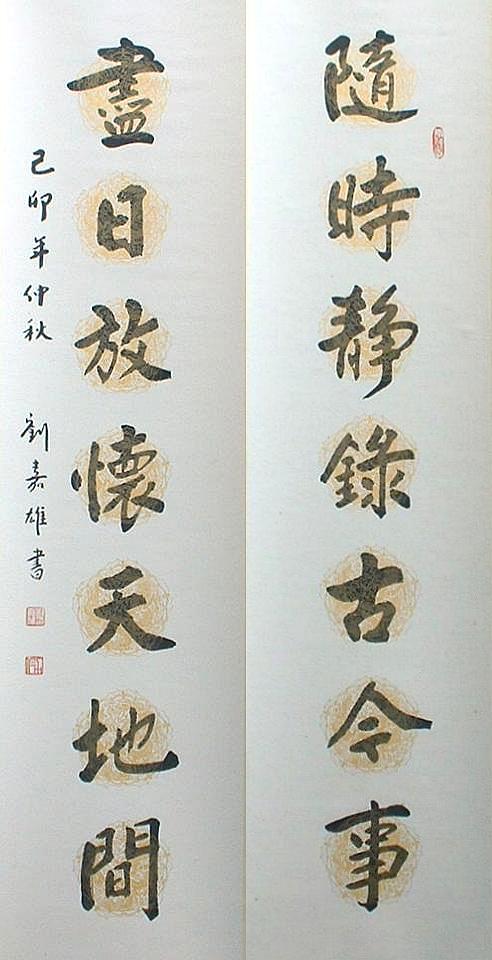 隨時靜錄古今事
盡日放懷天地間
己卯年仲秋 劉嘉雄書